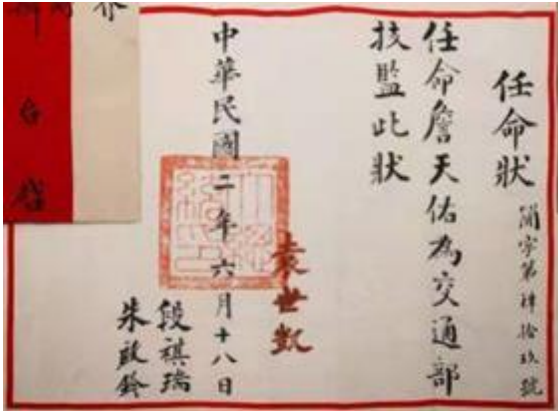 任命狀
簡字第肆拾玖號
任命詹天佑為交通部
技監此狀
袁世凱
中華民國二年六月十八日
段祺瑞
朱啟鈐
台啓